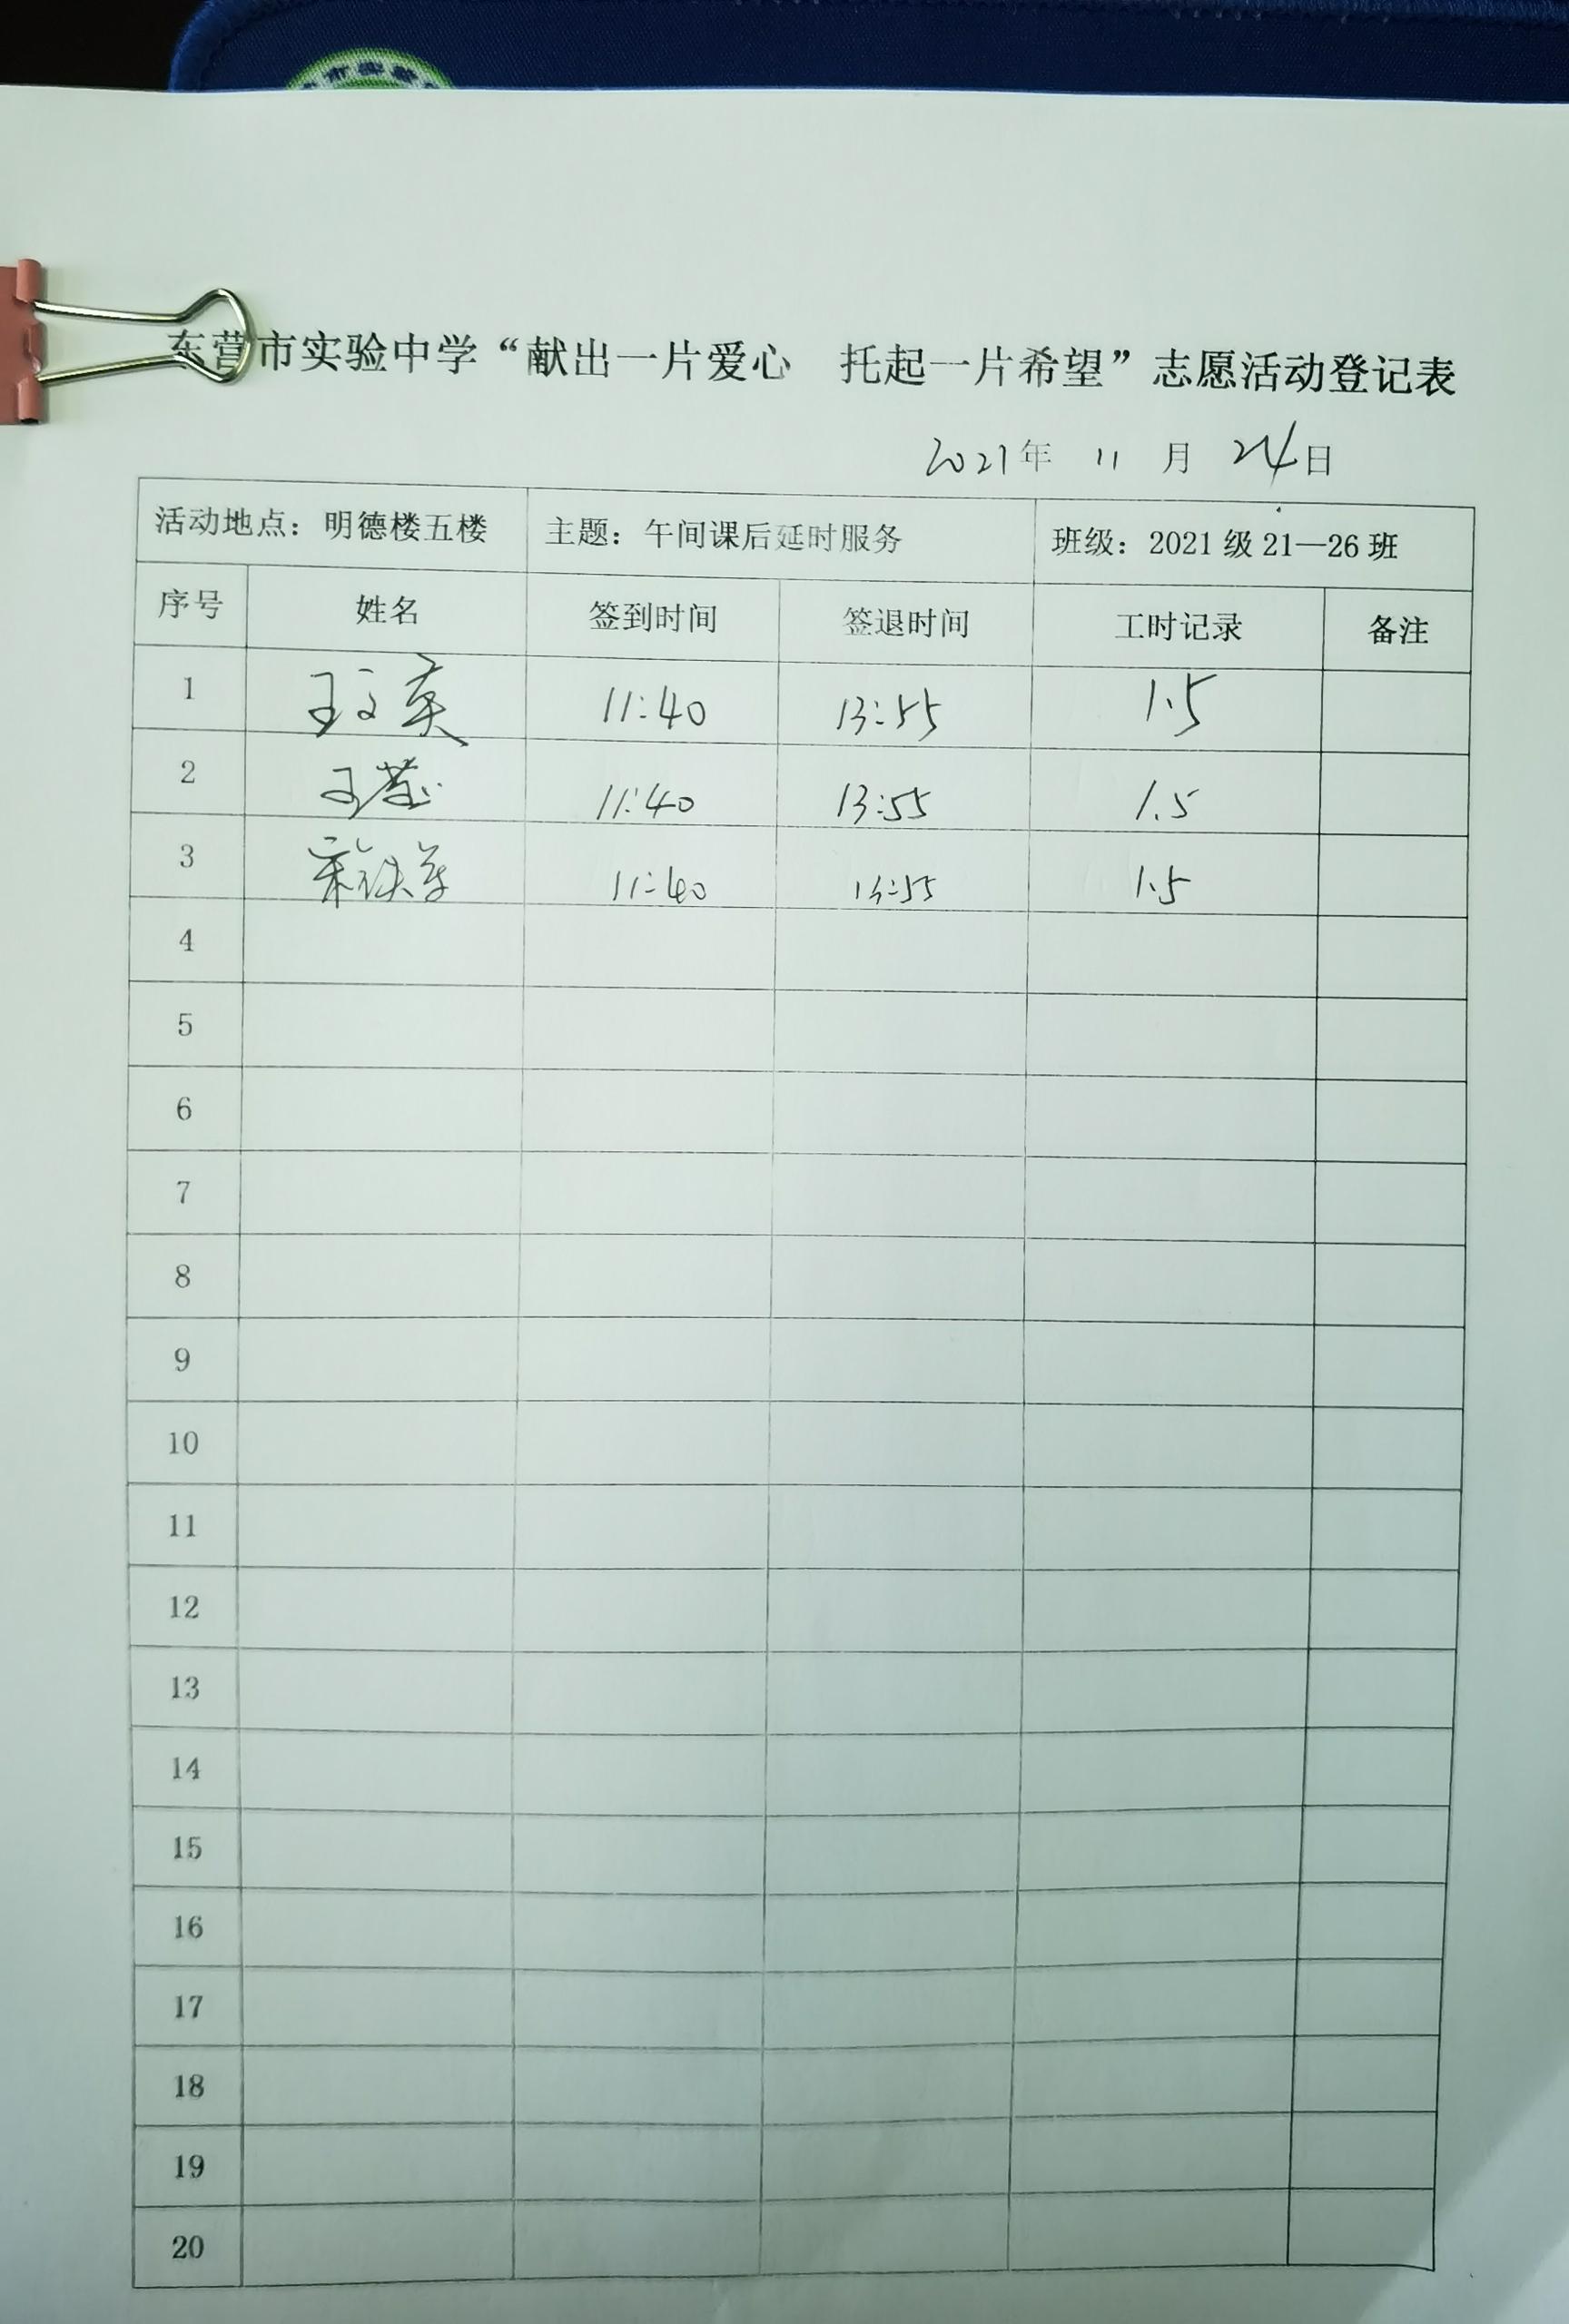 东营市实验中学“献出一片爱心 托起一片希望”志愿活动登记表
2021年 11 月 24日
活动地点：明德楼五楼 主题：午间课后延时服务 班级：2021级21—26班
序号 姓名 签到时间 签退时间 工时记录 备注
1 王文英 11:40 13:55 1.5
2 王 11:40 13:55 1.5
3 宋 11:40 13:55 1.5
4
5
6
7
8
9
10
11
12
13
14
15
16
17
18
19
20